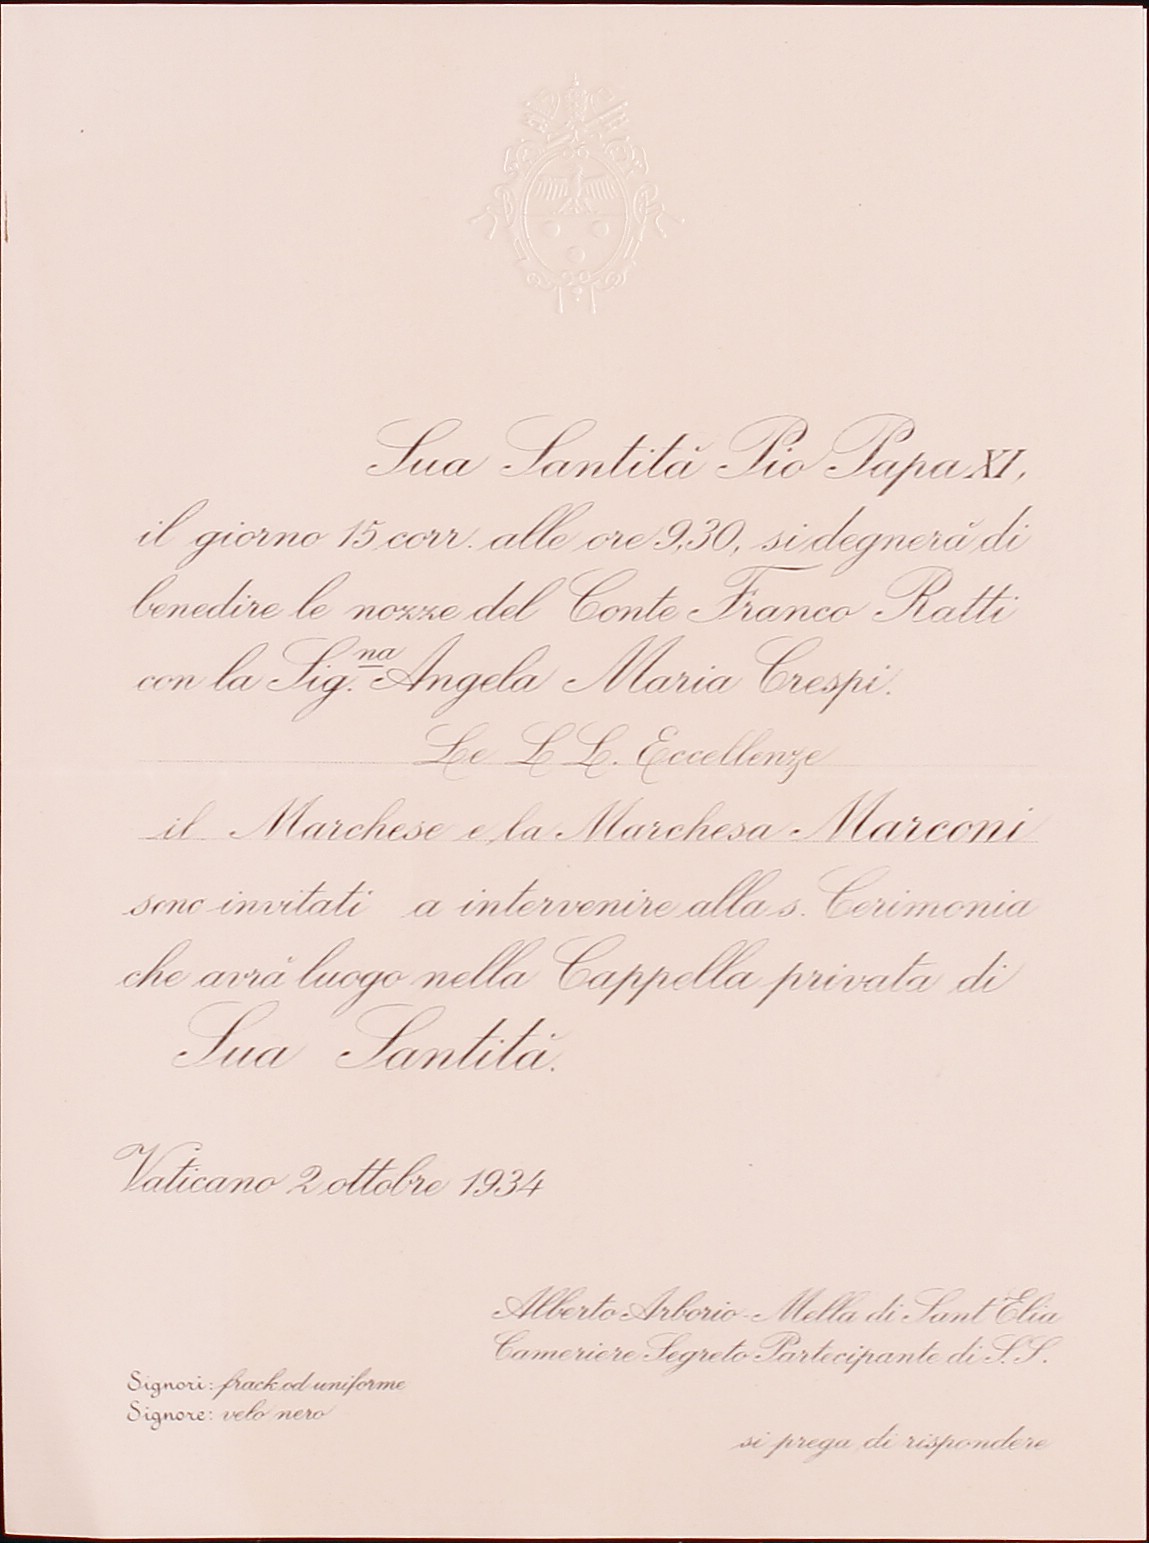 Sua Santità Pio Papa XI,
il giorno 15 corr. alle ore 9,30, si degnerà di
benedire le nozze del Conte Franco Ratti
con la Sig.na Angela Maria Crespi.
Le L L. Eccellenze
il Marchese e la Marchesa Marconi
sono invitati a intervenire alla s. Cerimonia
che avrà luogo nella Cappella privata di
Sua Santità.
Vaticano 2 ottobre 1934
Alberto Arborio-Mella di Sant'Elia
Cameriere Segreto Partecipante di S.S.
Signori: frack od uniforme
Signore: velo nero
si prega di rispondere